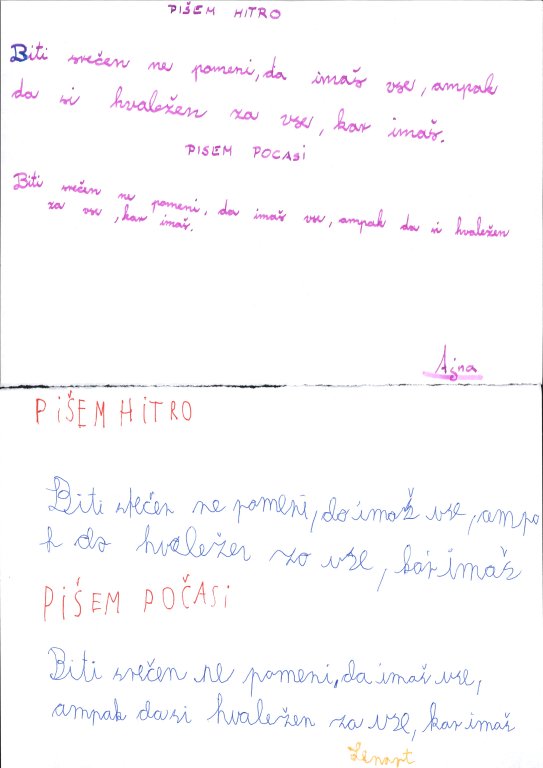 PIŠEM HITRO
Biti srečen ne pomeni, da imaš vse, ampak
da si hvaležen za vse, kar imaš.
PIŠEM POČASI
Biti srečen ne pomeni, da imaš vse, ampak da si hvaležen
za vse, kar imaš.
Ajna
PiŠEM HiTRO
Biti srečen ne pomeni, da imaš vse, ampa
k da hvaležen za vse, kar imaš
PiŠEM POČASi
Biti srečen ne pomeni, da imaš vse,
ampak da si hvaležen za vse, kar imaš
Lenart